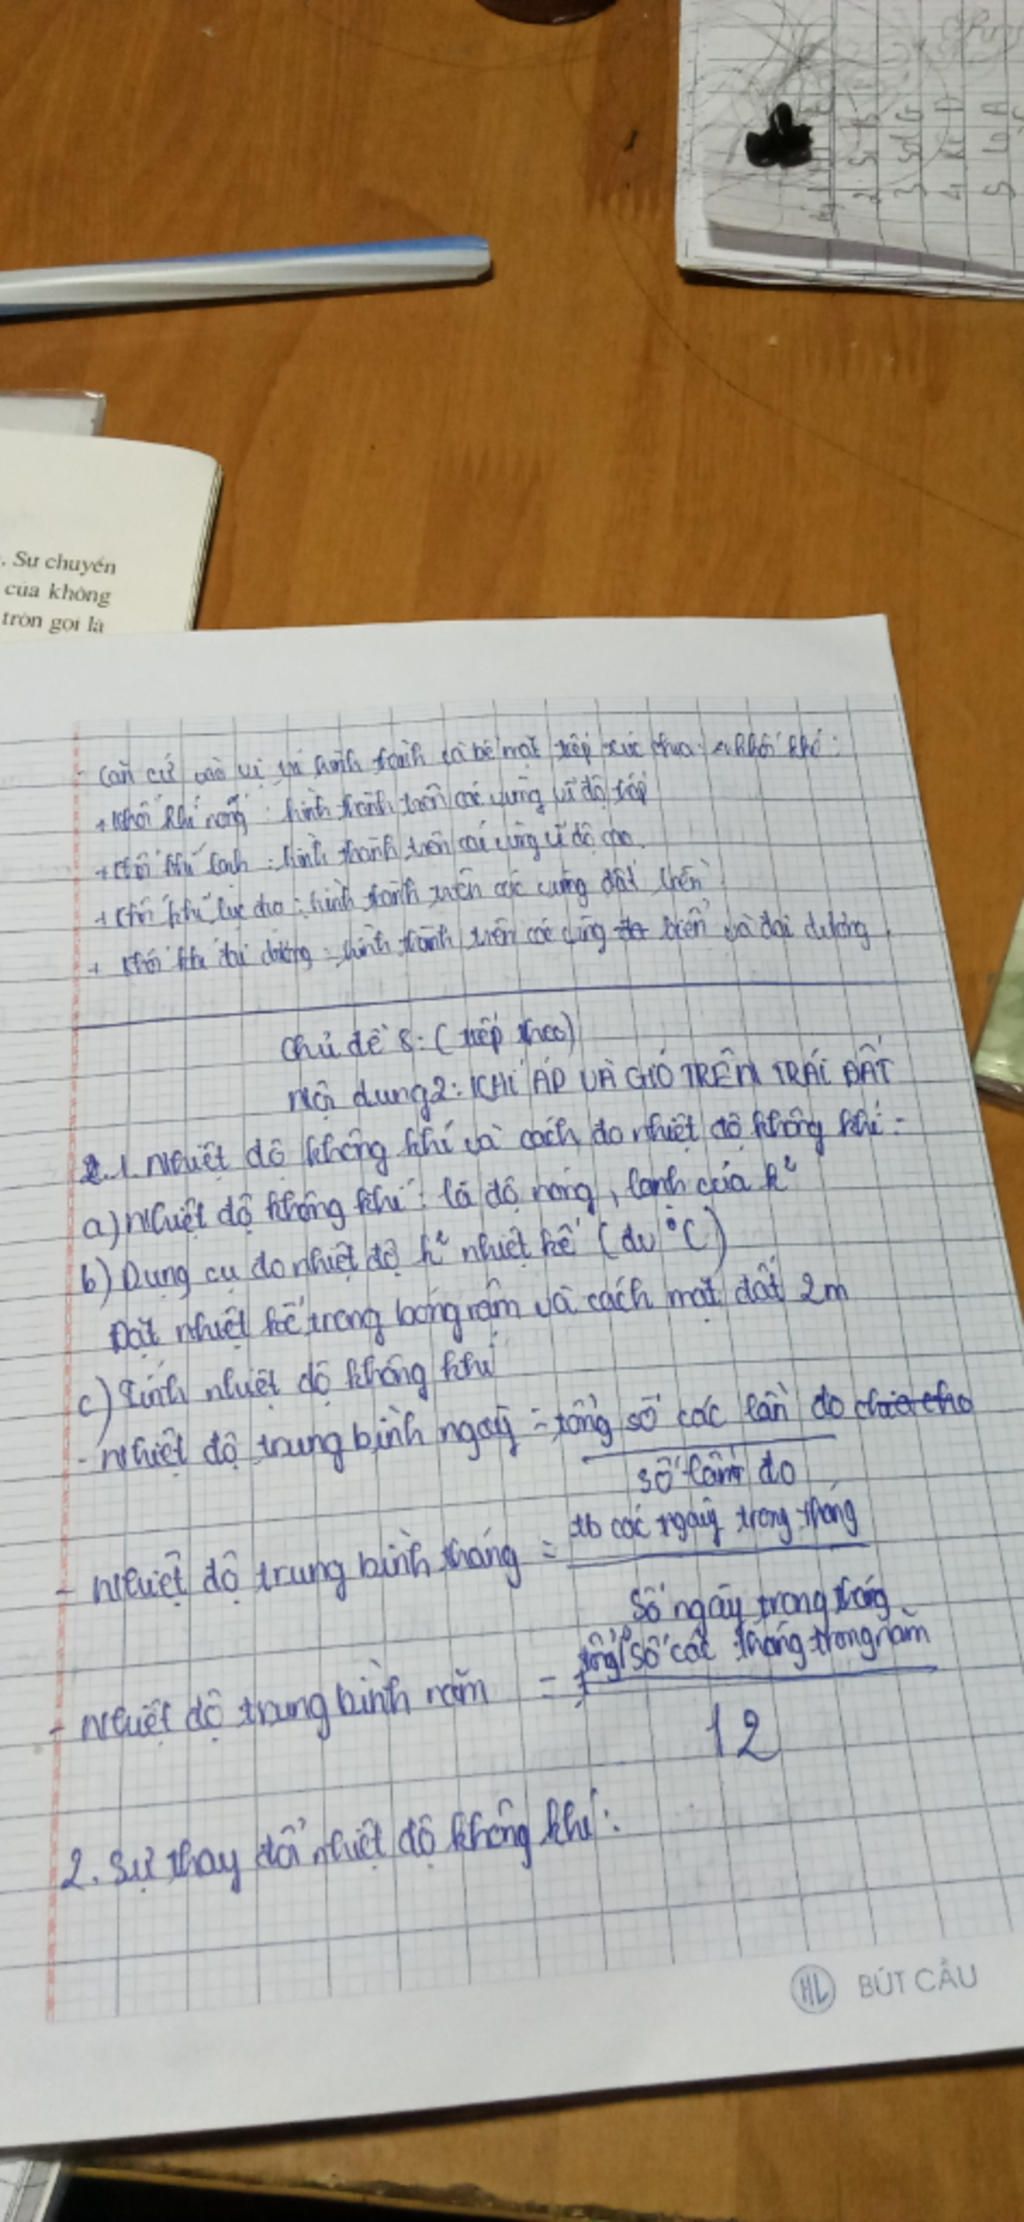 . Sự chuyển
của không
tròn gọi là
- Căn cứ vào vị trí hình thành và bề mặt tiếp xúc chia 4 khối khí:
+ Khối khí nóng: hình thành trên các vùng vĩ độ thấp
+ Khối khí lạnh: hình thành trên các vùng vĩ độ cao.
+ Khối khí lục địa: hình thành trên các vùng đất liền
+ Khối khí đại dương: hình thành trên các vùng biển và đại dương.
Chủ đề 8: (tiếp theo)
Nội dung 2: KHÍ ÁP VÀ GIÓ TRÊN TRÁI ĐẤT
1. Nhiệt độ không khí và cách đo nhiệt độ không khí:
a) Nhiệt độ không khí: là độ nóng, lạnh của k²
b) Dụng cụ đo nhiệt độ k² nhiệt kế (đv °C)
Đặt nhiệt kế trong bóng râm và cách mặt đất 2m
c) Tính nhiệt độ không khí
- Nhiệt độ trung bình ngày = tổng số các lần đo
số lần đo
- Nhiệt độ trung bình tháng = tb các ngày trong tháng
Số ngày trong tháng
- Nhiệt độ trung bình năm = tổng số các tháng trong năm
12
2. Sự thay đổi nhiệt độ không khí:
HL BÚT CẦU